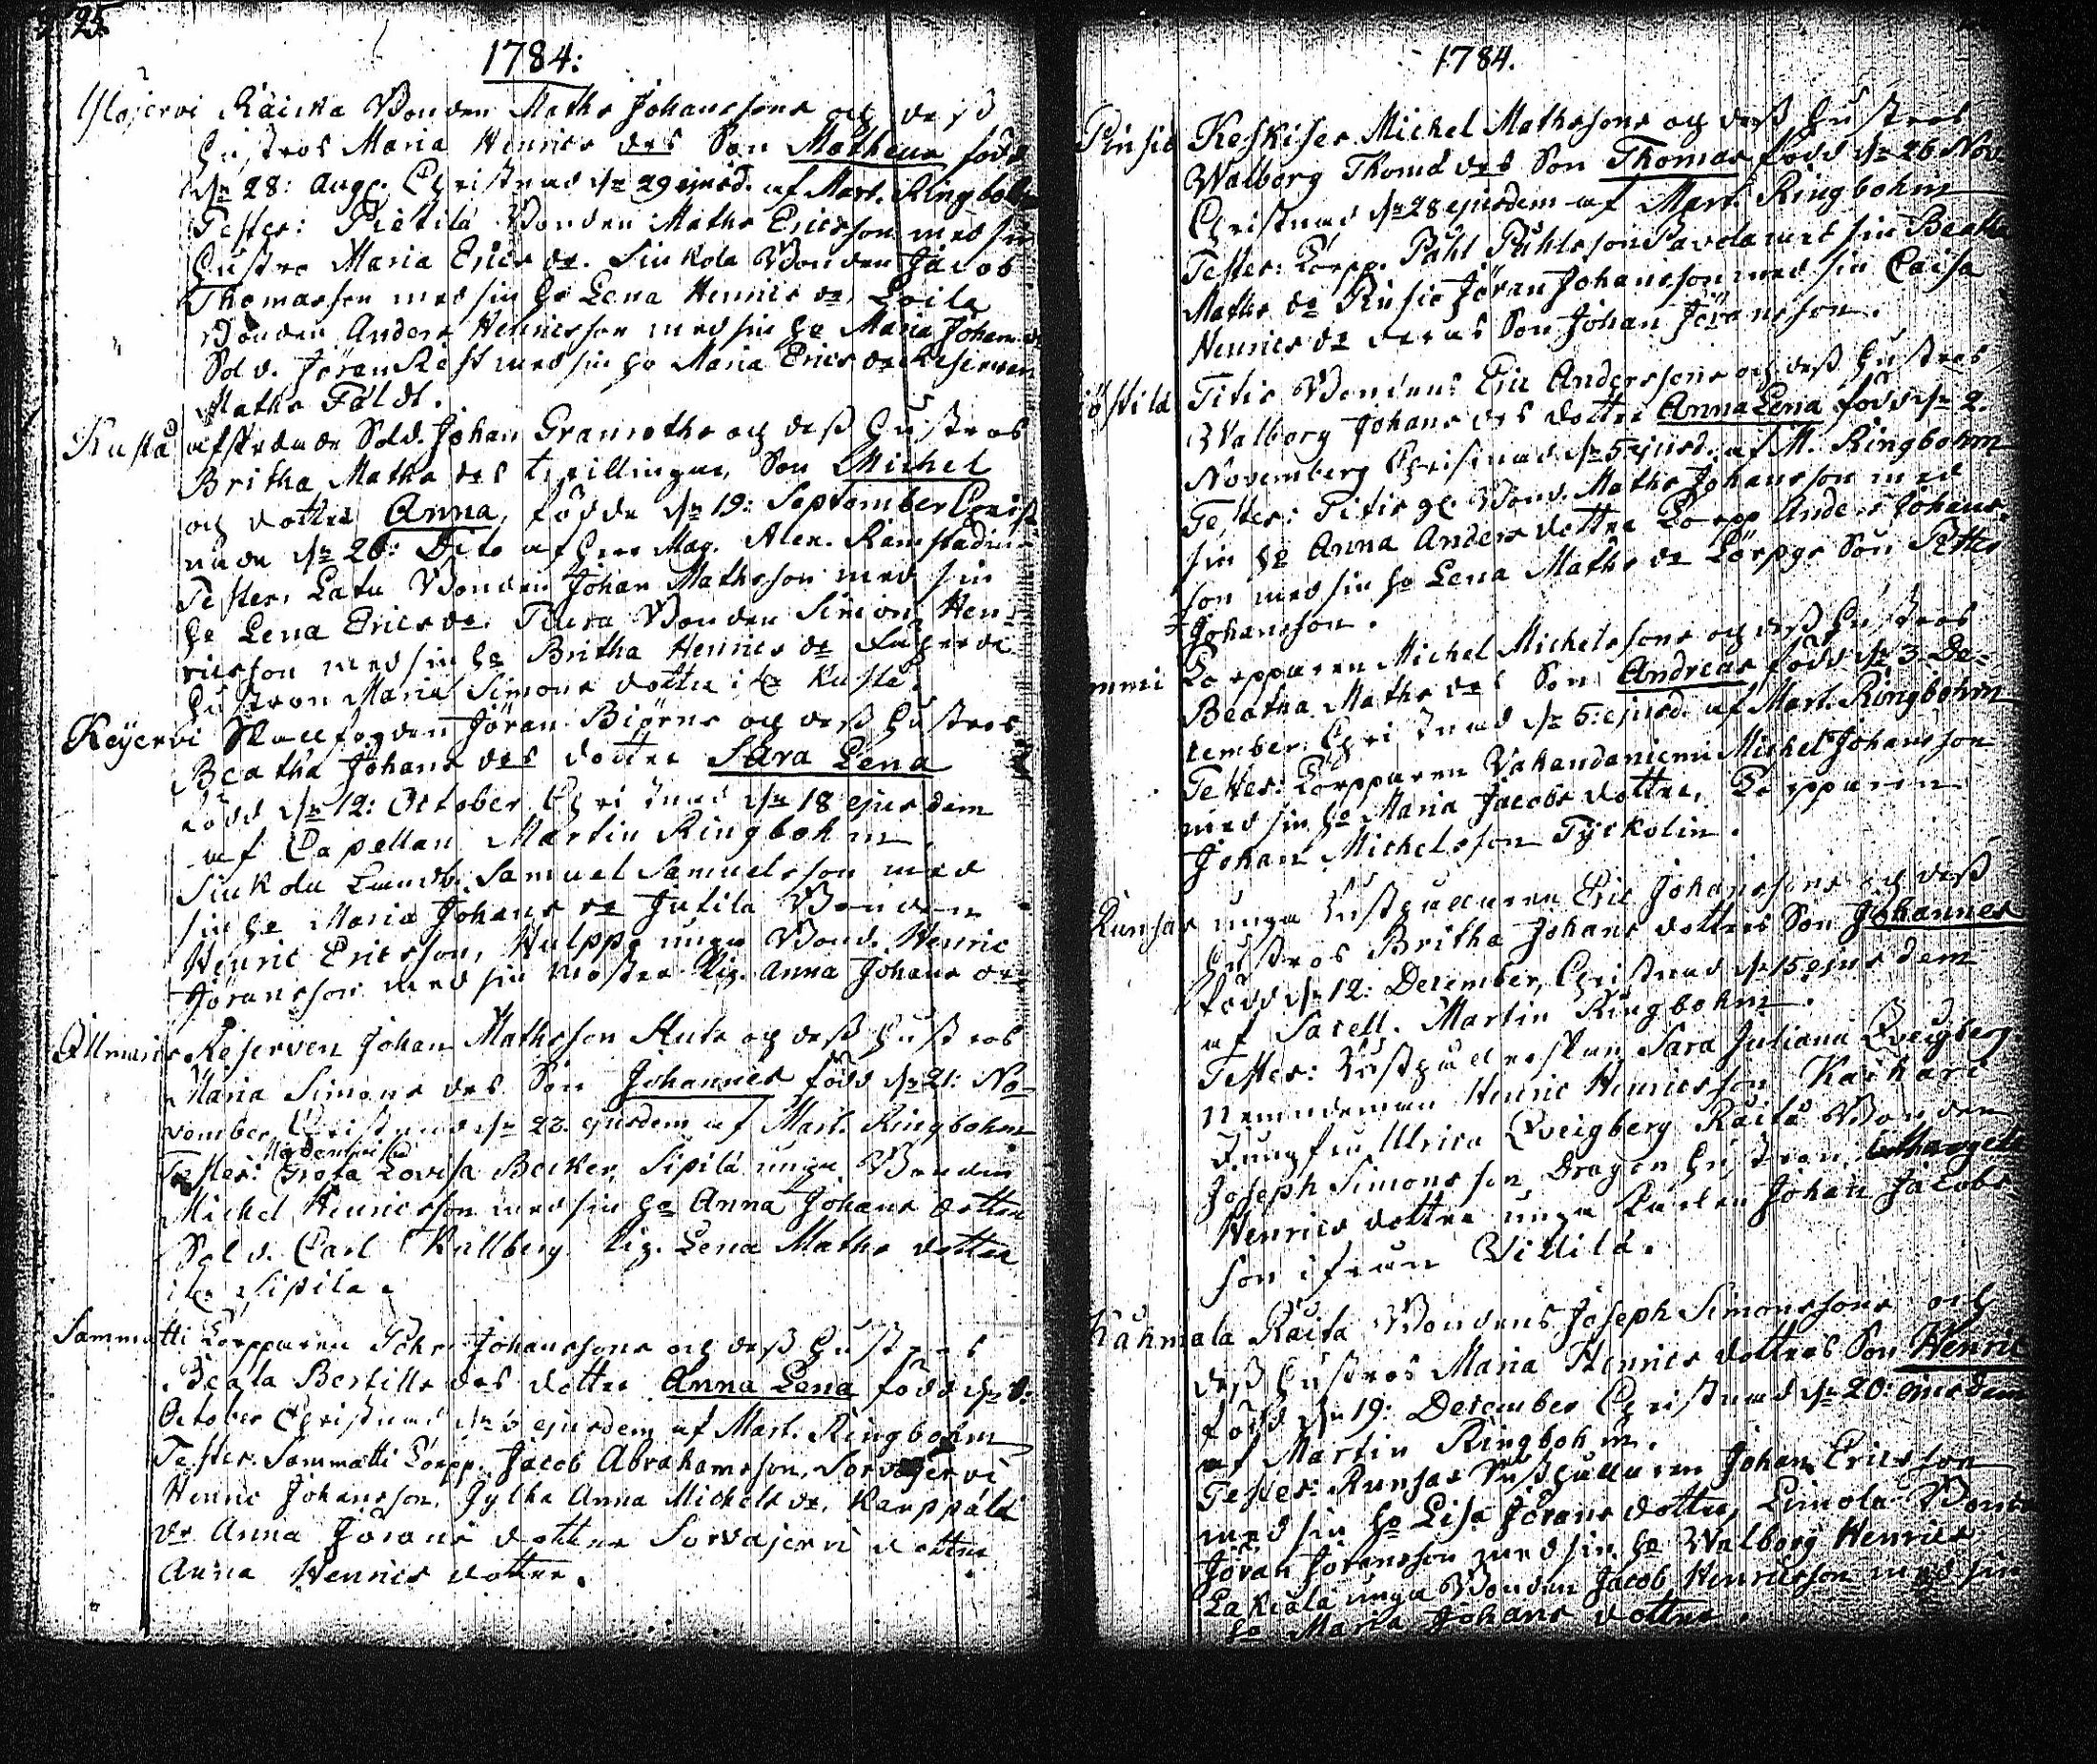 25
1784:
Ylöjervi Räicka Bonden Maths Johanssons och dess
hustros Maria Henrics des Son Matheus född
dn 28: Aug. Christnad dn 29 ejusd. af Mart. Ringbohm
Testes: Pietilä Bonden Maths Ericsson med sin
hustro Maria Erics dr. Siukola Bonden Jacob
Thomasson med sin ho Lena Henrics dr
Bonden Anders Henricsson med sin ho Maria Johans d
Sold. Jöran Rest med sin ho Maria Erics dr Reserven
Maths Fäldt.
afskedade Sold. Johan och dess hustros
Britha Maths des tvillingar, Son Michel
och dotter Anna, födde dn 19: September Christ
nade dn 26: Dito af herr Mag. Alex. Ramstadius
Testes. Latu Bonden Johan Mathsson med sin
ho Lena Erics dr. Bonden Simon Hen-
ricsson med sin ho Britha Henrics dr
hustron Maria Simons dotter
Keijervi Skallfogden Jöran Biörns och dess hustros
Beatha Johans des dotter Sara Lena
född dn 12: October Christnad dn 18 ejusdem
af Capellan Martin Ringbohm
Siukola Landb. Samuel Samuelsson med
sin ho Maria Johans dr Jutila Bonden
Henric Ericsson, unga Bond. Henric
Jöransson med sin moster Pig. Anna Johans dr
Reserven Johan Mathsson och dess hustros
Maria Simons des Son Johannes född dn 21: No-
vember Christnad dn 23. ejusdem af Mart. Ringbohm
Testes: Greta Lovisa Becker, Sipilä unga Bonden
Michel Henricsson med sin ho Anna Johans dotter
Sold. Carl Kullberg Pig. Lena Maths dotter
Sipila.
Sammatti Torpparen Johanssons och dess hustros
Beata Bertills des dotter Anna Lena född dn
October Christnad dn ejusdem af Mart. Ringbohm
Testes. Sammatti Torpp. Jacob Abrahamsson. Sorvajervi
Henric Johansson. Jylhä Anna Michels dr. Karppälä
dr Anna Jörans dotter Sorvajervi dotter
Anna Henrics dotter.
1784.
Pinsiö Keskises Michel Mathssons och dess hustros
Walborg Thomæ des Son Thomas född dn 26 Nov.
Christnad dn 28 ejusdem af Mart. Ringbohm
Testes: Torpp. Påhl Påhlsson Pavola med sin Beatha
Maths dr Pinsiö Jöran Johansson med sin Caisa
Henrics dr deras Son Johan Jöransson.
Bondens Eric Anderssons och dess hustros
Walborg Johans des dotter Anna Lena född dn 2.
November Christnad dn 5 ejusd. af M. Ringbohm
Testes: Bond. Maths Johansson med
sin ho Anna Anders dotter Torpp Anders Johans-
son med sin ho Lena Maths dr Torpps Son Petter
Johansson.
Torpparen Michel Michelssons och dess hustros
Beatha Maths des Son Andreas född dn 3 De-
cember, Christnad dn 5: ejusd. af Mart. Ringbohm
Testes: Torpparen Michel Johansson
med sin ho Maria Jacobs dotter, Torpparen
Johan Michelsson Tyrkölin.
Runsas unga Rusthållaren Eric Johanssons och dess
hustros Britha Johans dotters Son Johannes
född dn 12: December, Christnad dn 15 ejusdem
af Sacell. Martin Ringbohm.
Testes: Rusthållerskan Sara Juliana Qveigberg
Nemndeman Henric Henricsson Kaihari
Jungfru Ulrica Qveigberg Räitä Bonden
Joseph Simonsson Dragon hustron Margetha
Henrics dotter unga Johan Jacobs-
son ifrån
Kähmälä Räitä Bondens Joseph Simonssons och
dess hustros Maria Henrics dotters Son Henric
född dn 19: December Christnad dn 20: ejusdem
af Martin Ringbohm.
Testes: Runsas Rusthållaren Johan Ericsson
med sin ho Lisa Jörans dotter, Limola Bonden
Jöran Jöransson med sin ho Walborg Henrics
Lakiala unga Bonden Jacob Henricsson med sin
ho Maria Johans dotter.